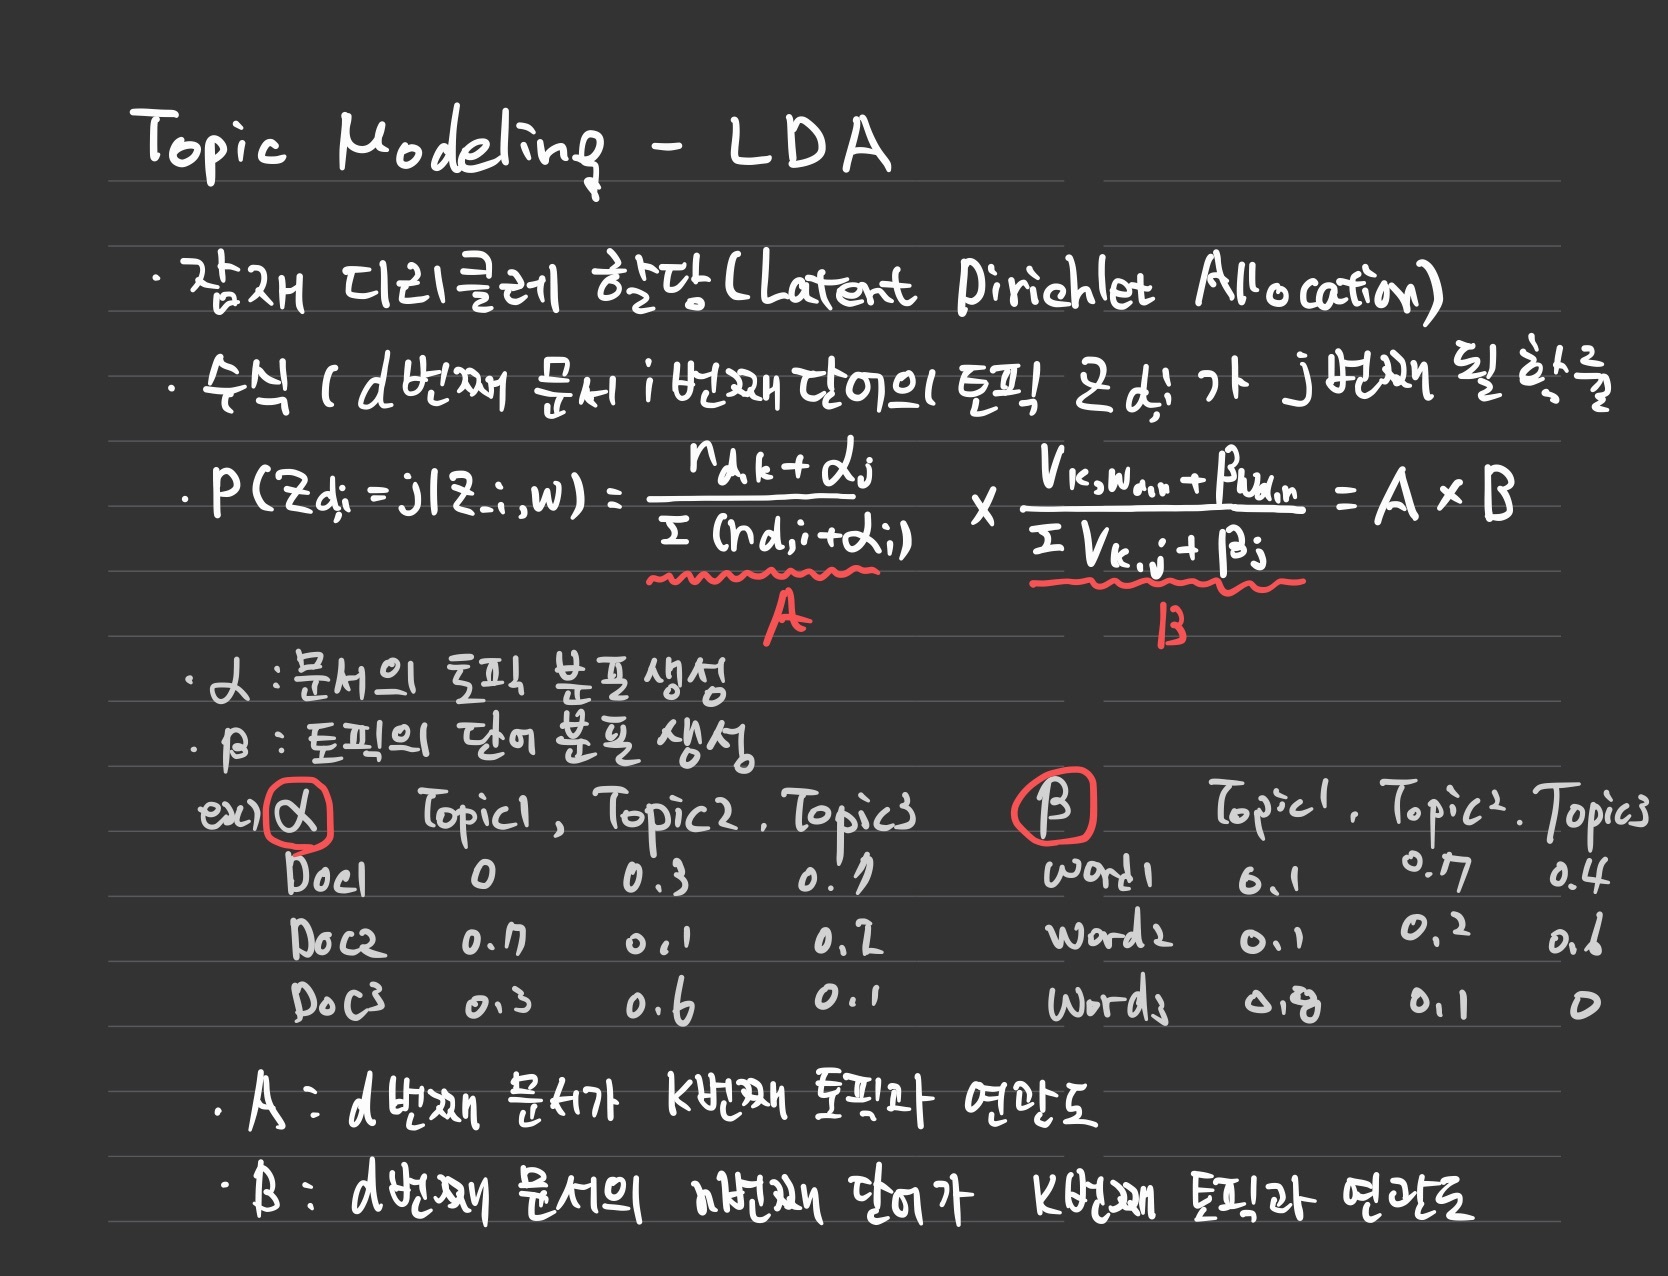 Topic Modeling - LDA
· 잠재 디리클레 할당 (Latent Dirichlet Allocation)
· 수식 ( d번째 문서 i번째 단어의 토픽 Z d,i 가 j번째 될 확률
· P(Zd,i = j | Z-i, w) = (nd,k + αj) / (Σ (nd,i + αi)) × (Vk,wd,n + βwd,n) / (Σ Vk,j + βj) = A × B
A B
· α : 문서의 토픽 분포 생성
· β : 토픽의 단어 분포 생성
ex) α Topic1, Topic2. Topic3 β Topic1, Topic2. Topic3
Doc1 0 0.3 0.7 word1 0.1 0.7 0.4
Doc2 0.7 0.1 0.2 word2 0.1 0.2 0.6
Doc3 0.3 0.6 0.1 word3 0.8 0.1 0
· A : d번째 문서가 k번째 토픽과 연관도
· B : d번째 문서의 n번째 단어가 k번째 토픽과 연관도